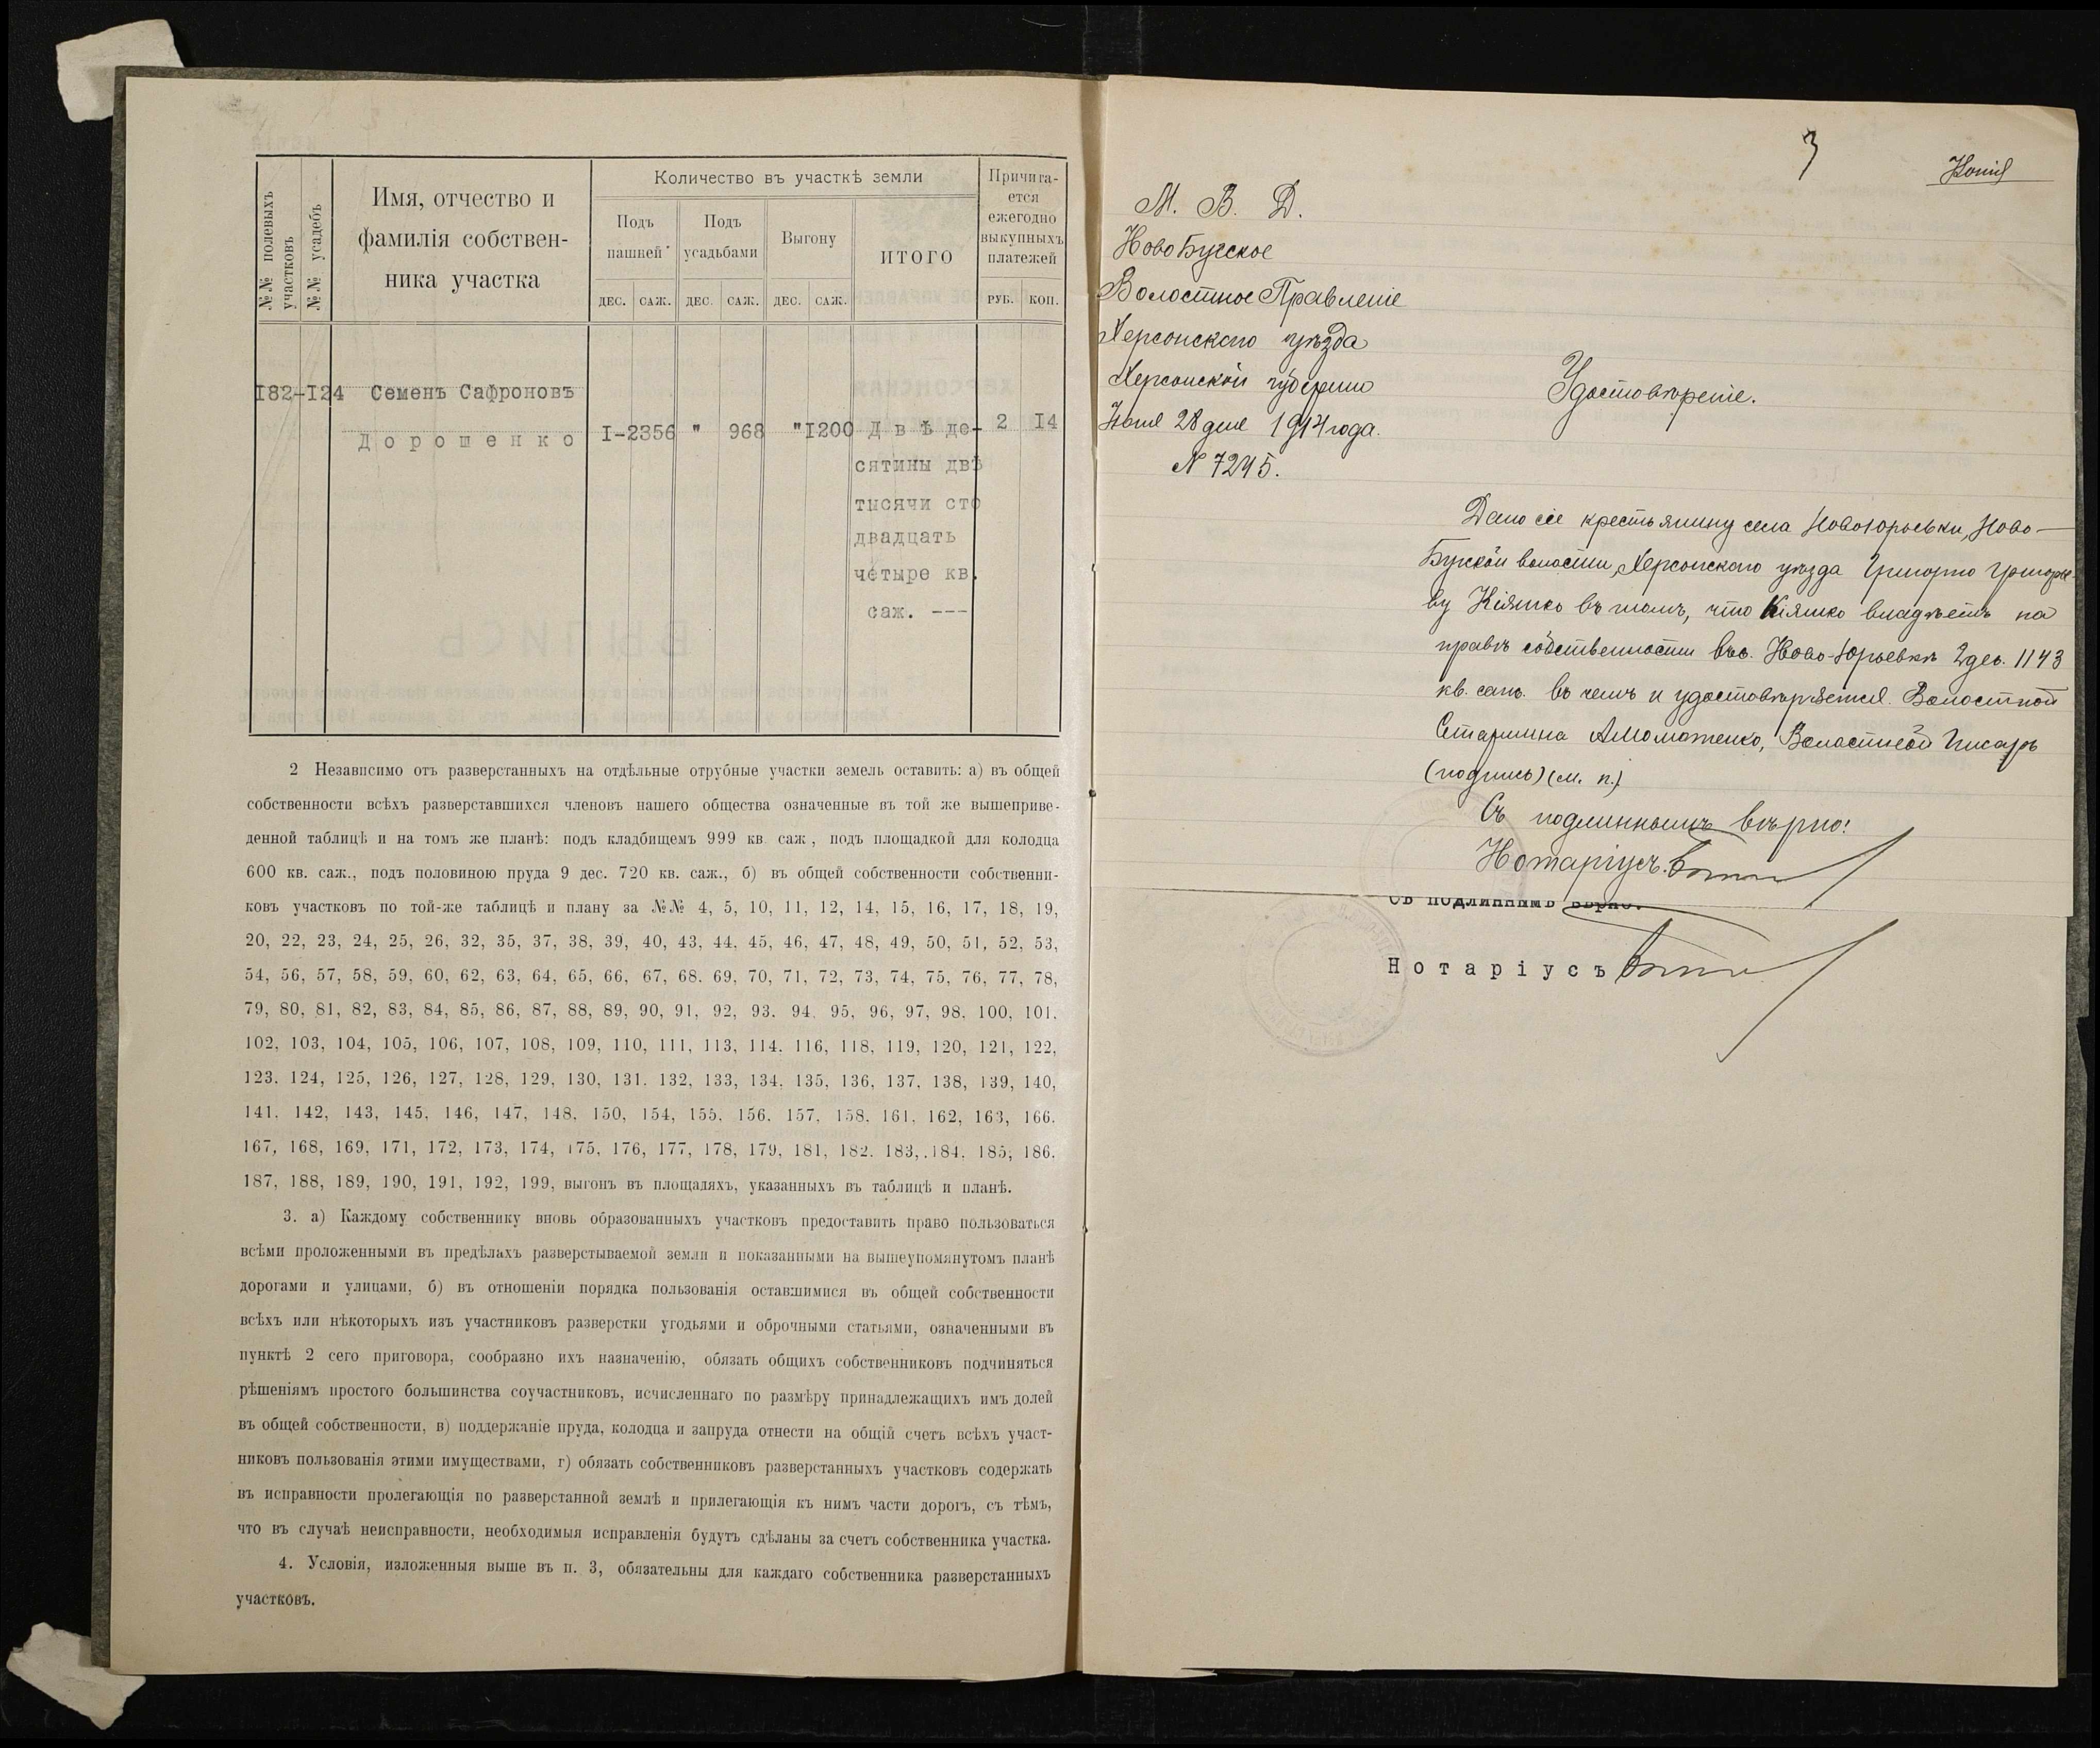 №№ полевыхъ
участковъ
№№ усадебъ
Имя, отчество и
фамилія собствен-
ника участка
Количество въ участкѣ земли
Подъ
пашней
Подъ
усадьбами
Выгону
ИТОГО
Причита-
ется
ежегодно
выкупныхъ
платежей
ДЕС. САЖ. ДЕС. САЖ. ДЕС. САЖ. РУБ. КОП.
I82-I24 Семенъ Сафроновъ
Дорошенко I-2356 " 968 "I200 Двѣ де- 2 I4
сятины двѣ
тысячи сто
двадцать
четыре кв.
саж. ---
2 Независимо отъ разверстанныхъ на отдѣльные отрубные участки земель оставить: а) въ общей
собственности всѣхъ разверставшихся членовъ нашего общества означенные въ той же вышеприве-
денной таблицѣ и на томъ же планѣ: подъ кладбищемъ 999 кв. саж., подъ площадкой для колодца
600 кв. саж., подъ половиною пруда 9 дес. 720 кв. саж., б) въ общей собственности собственни-
ковъ участковъ по той-же таблицѣ и плану за №№ 4, 5, 10, 11, 12, 14, 15, 16, 17, 18, 19,
20, 22, 23, 24, 25, 26, 32, 35, 37, 38, 39, 40, 43, 44, 45, 46, 47, 48, 49, 50, 51, 52, 53,
54, 56, 57, 58, 59, 60, 62, 63, 64, 65, 66, 67, 68. 69, 70, 71, 72, 73, 74, 75, 76, 77, 78,
79, 80, 81, 82, 83, 84, 85, 86, 87, 88, 89, 90, 91, 92, 93. 94. 95, 96, 97, 98, 100, 101.
102, 103, 104, 105, 106, 107, 108, 109, 110, 111, 113, 114. 116, 118, 119, 120, 121, 122,
123. 124, 125, 126, 127, 128, 129, 130, 131. 132, 133, 134. 135, 136, 137. 138, 139, 140,
141. 142, 143, 145, 146, 147, 148, 150, 154, 155, 156. 157, 158, 161, 162, 163, 166.
167, 168, 169, 171, 172, 173, 174, 175, 176, 177, 178, 179, 181, 182. 183, 184. 185, 186.
187, 188, 189, 190, 191, 192, 199, выгонъ въ площадяхъ, указанныхъ въ таблицѣ и планѣ.
3. а) Каждому собственнику вновь образованныхъ участковъ предоставить право пользоваться
всѣми проложенными въ предѣлахъ разверстываемой земли и показанными на вышеупомянутомъ планѣ
дорогами и улицами, б) въ отношеніи порядка пользованія оставшимися въ общей собственности
всѣхъ или нѣкоторыхъ изъ участниковъ разверстки угодьями и оброчными статьями, означенными въ
пунктѣ 2 сего приговора, сообразно ихъ назначенію, обязать общихъ собственниковъ подчиняться
рѣшеніямъ простого большинства соучастниковъ, исчисленнаго по размѣру принадлежащихъ имъ долей
въ общей собственности, в) поддержаніе пруда, колодца и запруда отнести на общій счетъ всѣхъ участ-
никовъ пользованія этими имуществами, г) обязать собственниковъ разверстанныхъ участковъ содержать
въ исправности пролегающія по разверстанной землѣ и прилегающія къ нимъ части дорогъ, съ тѣмъ,
что въ случаѣ неисправности, необходимыя исправленія будутъ сдѣланы за счетъ собственника участка.
4. Условія, изложенныя выше въ п. 3, обязательны для каждаго собственника разверстанныхъ
участковъ.
3
Копія
М. В. Д.
Ново Бугское
Волостное Правленіе
Херсонскаго уѣзда
Херсонской губерніи
28 дня 1914 года.
N 7245.
Удостовѣреніе.
Дано сіе крестьянину села Новоюрьевки, Ново-
Бугской волости, Херсонскаго уѣзда Григорію Григорье-
ву Кіяшко въ томъ, что Кіяшко владѣетъ на
правѣ собственности въ с. Ново-Юрьевкѣ 2 дес. 1143
кв. саж. въ чемъ и удостовѣряется. Волостной
Старшина Волостной Писарь
(подпись) (м. п.)
Съ подлиннымъ вѣрно!
Нотаріусъ
Съ подлиннымъ вѣрно:
Нотаріусъ